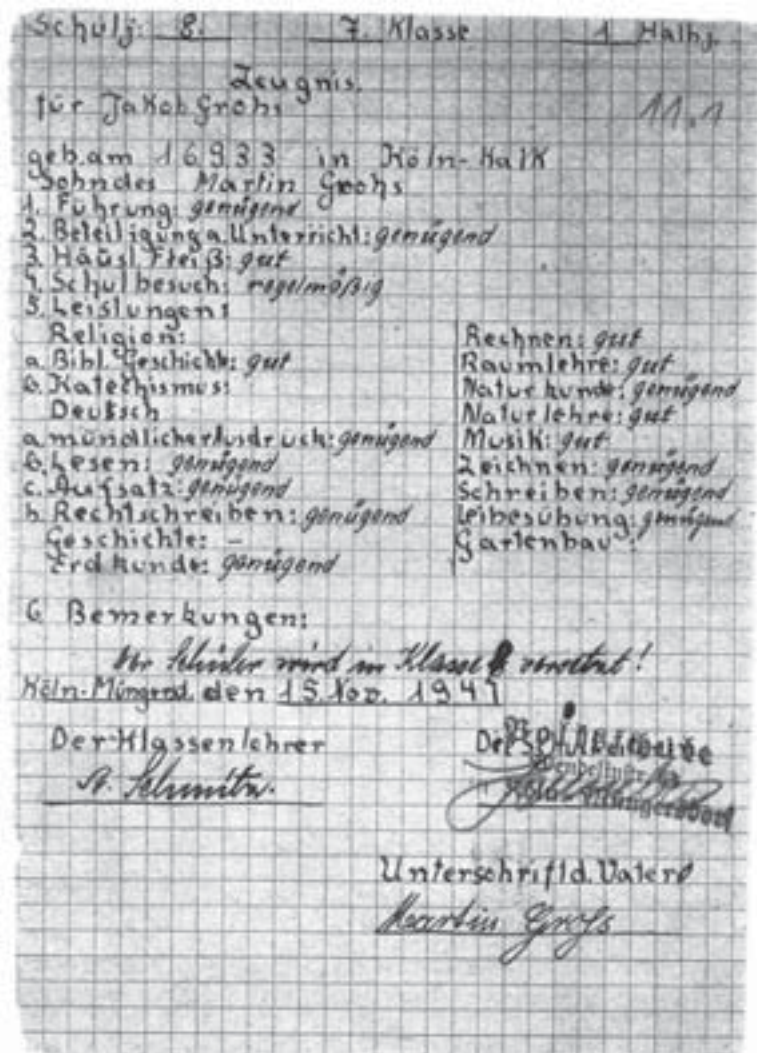 Schulj: 8. 7. Klasse 1 Halbj.
Zeugnis.
für Jakob Grohs 11.1
geb.am 16.9.33 in Köln-Kalk
Sohn des Martin Grohs
1. Führung: genügend
2. Beteiligung a. Unterricht: genügend
3. Häusl. Fleiß: gut
4. Schulbesuch: regelmäßig
5. Leistungen:
Religion:
a. Bibl. Geschichte: gut
b. Katechismus:
Deutsch
a. mündlicher Ausdruck: genügend
b. Lesen: genügend
c. Aufsatz: genügend
h. Rechtschreiben: genügend
Geschichte: –
Erdkunde: genügend
Rechnen: gut
Raumlehre: gut
Naturkunde: genügend
Naturlehre: gut
Musik: gut
Zeichnen: genügend
Schreiben: genügend
Leibesübung: genügend
Gartenbau:
6. Bemerkungen:
Der Schüler wird in Klasse versetzt!
den 15. Nov. 1947
Der Klassenlehrer
A. Schmitz.
Der Schulleiter
Unterschrift d. Vaters
Martin Grohs